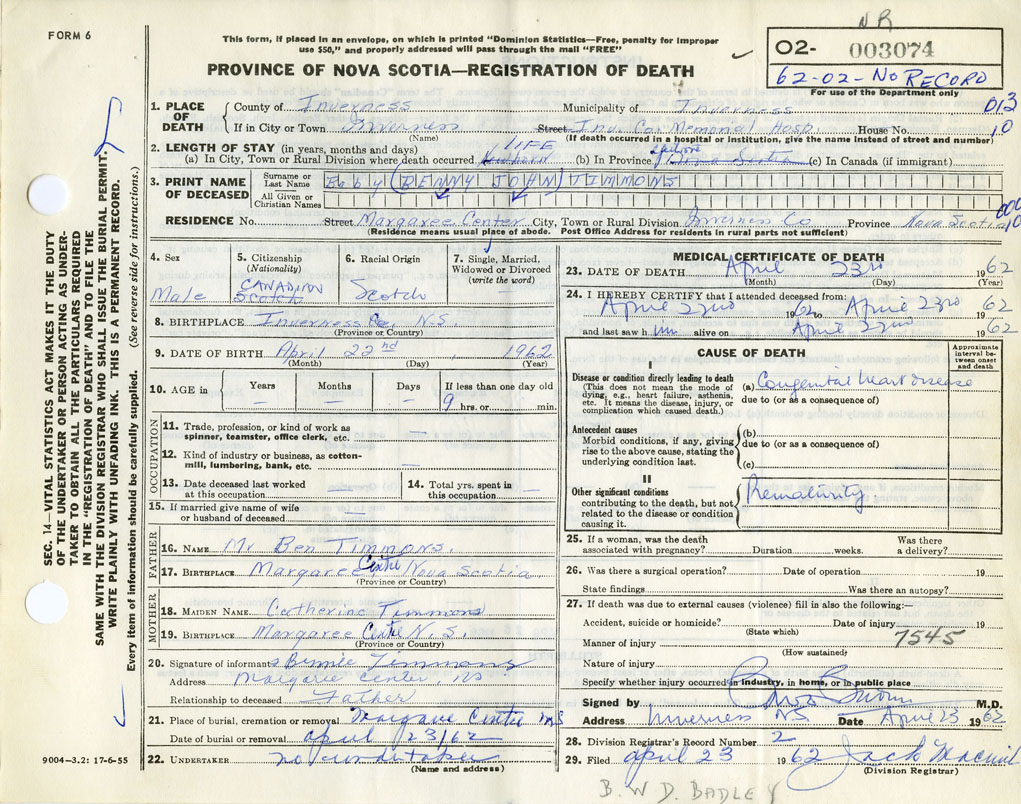 NR
FORM 6
This form, if placed in an envelope, on which is printed "Dominion Statistics—Free, penalty for improper
use $50," and properly addressed will pass through the mail "FREE"
02- 003074
62-02-No RECORD
For use of the Department only
PROVINCE OF NOVA SCOTIA—REGISTRATION OF DEATH
1. PLACE OF DEATH
County of Inverness Municipality of Inverness
013
If in City or Town Inverness Street Inv. Co. Memorial Hosp. House No.
10
(Name) (If death occurred in a hospital or institution, give the name instead of street and number)
2. LENGTH OF STAY (in years, months and days)
LIFE
(a) In City, Town or Rural Division where death occurred (b) In Province Nova Scotia (c) In Canada (if immigrant)
3. PRINT NAME OF DECEASED
Surname or Last Name Baby (BENNY JOHN) TIMMONS
All Given or Christian Names
RESIDENCE No. Street Margaree Center City, Town or Rural Division Inverness Co Province Nova Scotia
10
(Residence means usual place of abode. Post Office Address for residents in rural parts not sufficient)
4. Sex
Male
5. Citizenship (Nationality)
CANADIAN
Scotch
6. Racial Origin
Scotch
7. Single, Married, Widowed or Divorced (write the word)
—
8. BIRTHPLACE Inverness Co. N.S.
(Province or Country)
9. DATE OF BIRTH April 22nd 1962
(Month) (Day) (Year)
10. AGE in Years Months Days If less than one day old
— — — 9 hrs. or min.
OCCUPATION
11. Trade, profession, or kind of work as
spinner, teamster, office clerk, etc. —
12. Kind of industry or business, as cotton-
mill, lumbering, bank, etc. —
13. Date deceased last worked
at this occupation —
14. Total yrs. spent in
this occupation —
15. If married give name of wife
or husband of deceased —
FATHER
16. NAME Mr Ben Timmons.
17. BIRTHPLACE Margaree Centre Nova Scotia
(Province or Country)
MOTHER
18. MAIDEN NAME Catherine Timmons
19. BIRTHPLACE Margaree Centre N.S.
(Province or Country)
20. Signature of informant Bennie Timmons
Address Margaree Center, NS
Relationship to deceased Father
21. Place of burial, cremation or removal Margaree Centre NS
Date of burial or removal April 23/62
22. UNDERTAKER no undertaker
(Name and address)
MEDICAL CERTIFICATE OF DEATH
23. DATE OF DEATH April 23rd 1962
(Month) (Day) (Year)
24. I HEREBY CERTIFY that I attended deceased from:
April 22nd 1962 to April 23rd 1962
and last saw him alive on April 22nd 1962
CAUSE OF DEATH
Approximate interval between onset and death
I
Disease or condition directly leading to death
(This does not mean the mode of
dying, e.g., heart failure, asthenia,
etc. It means the disease, injury, or
complication which caused death.)
(a) Congenital heart disease
due to (or as a consequence of)
Antecedent causes
Morbid conditions, if any, giving
rise to the above cause, stating the
underlying condition last.
(b)
due to (or as a consequence of)
(c)
II
Other significant conditions
contributing to the death, but not
related to the disease or condition
causing it.
Prematurity
25. If a woman, was the death
associated with pregnancy? Duration weeks. Was there a delivery?
26. Was there a surgical operation? Date of operation 19
State findings Was there an autopsy?
27. If death was due to external causes (violence) fill in also the following:—
Accident, suicide or homicide? Date of injury 19
(State which)
7545
Manner of injury
(How sustained)
Nature of injury
Specify whether injury occurred in industry, in home, or in public place
Signed by M.D.
Address Inverness NS Date April 23 1962
28. Division Registrar's Record Number 2
29. Filed April 23 1962
(Division Registrar)
B. W D. BADLEY
SEC. 14—VITAL STATISTICS ACT MAKES IT THE DUTY
OF THE UNDERTAKER OR PERSON ACTING AS UNDER-
TAKER TO OBTAIN ALL THE PARTICULARS REQUIRED
IN THE "REGISTRATION OF DEATH" AND TO FILE THE
SAME WITH THE DIVISION REGISTRAR WHO SHALL ISSUE THE BURIAL PERMIT.
WRITE PLAINLY WITH UNFADING INK. THIS IS A PERMANENT RECORD.
Every item of information should be carefully supplied. (See reverse side for instructions.)
9004-3.2: 17-6-55